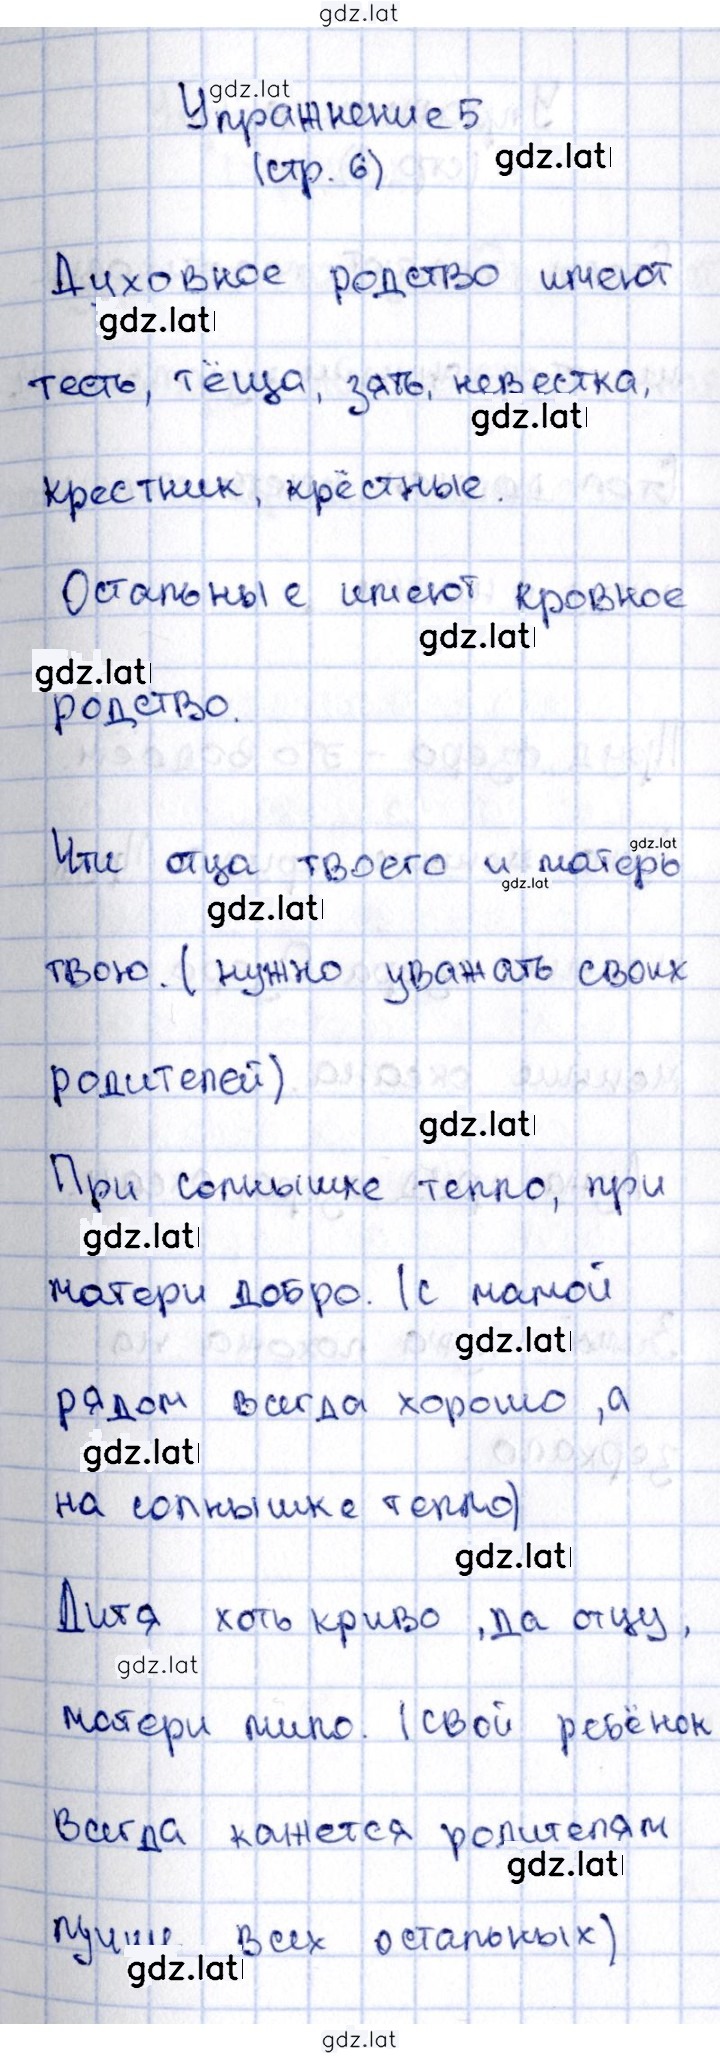 gdz.lat
gdz.lat
Упражнение 5
gdz.lat
(стр. 6)
Духовное родство имеют
gdz.lat
тесть, тёща, зять, невестка,
gdz.lat
крестник, крёстные.
Остальные имеют кровное
gdz.lat
gdz.lat
родство.
Чти отца твоего и матерь
gdz.lat
gdz.lat
gdz.lat
твою. (нужно уважать своих
родителей)
gdz.lat
При солнышке тепло, при
gdz.lat
матери добро. (с мамой
gdz.lat
рядом всегда хорошо, а
gdz.lat
на солнышке тепло)
gdz.lat
Дитя хоть криво, да отцу,
gdz.lat
матери мило. (свой ребёнок
всегда кажется родителям
gdz.lat
лучше всех остальных)
gdz.lat
gdz.lat